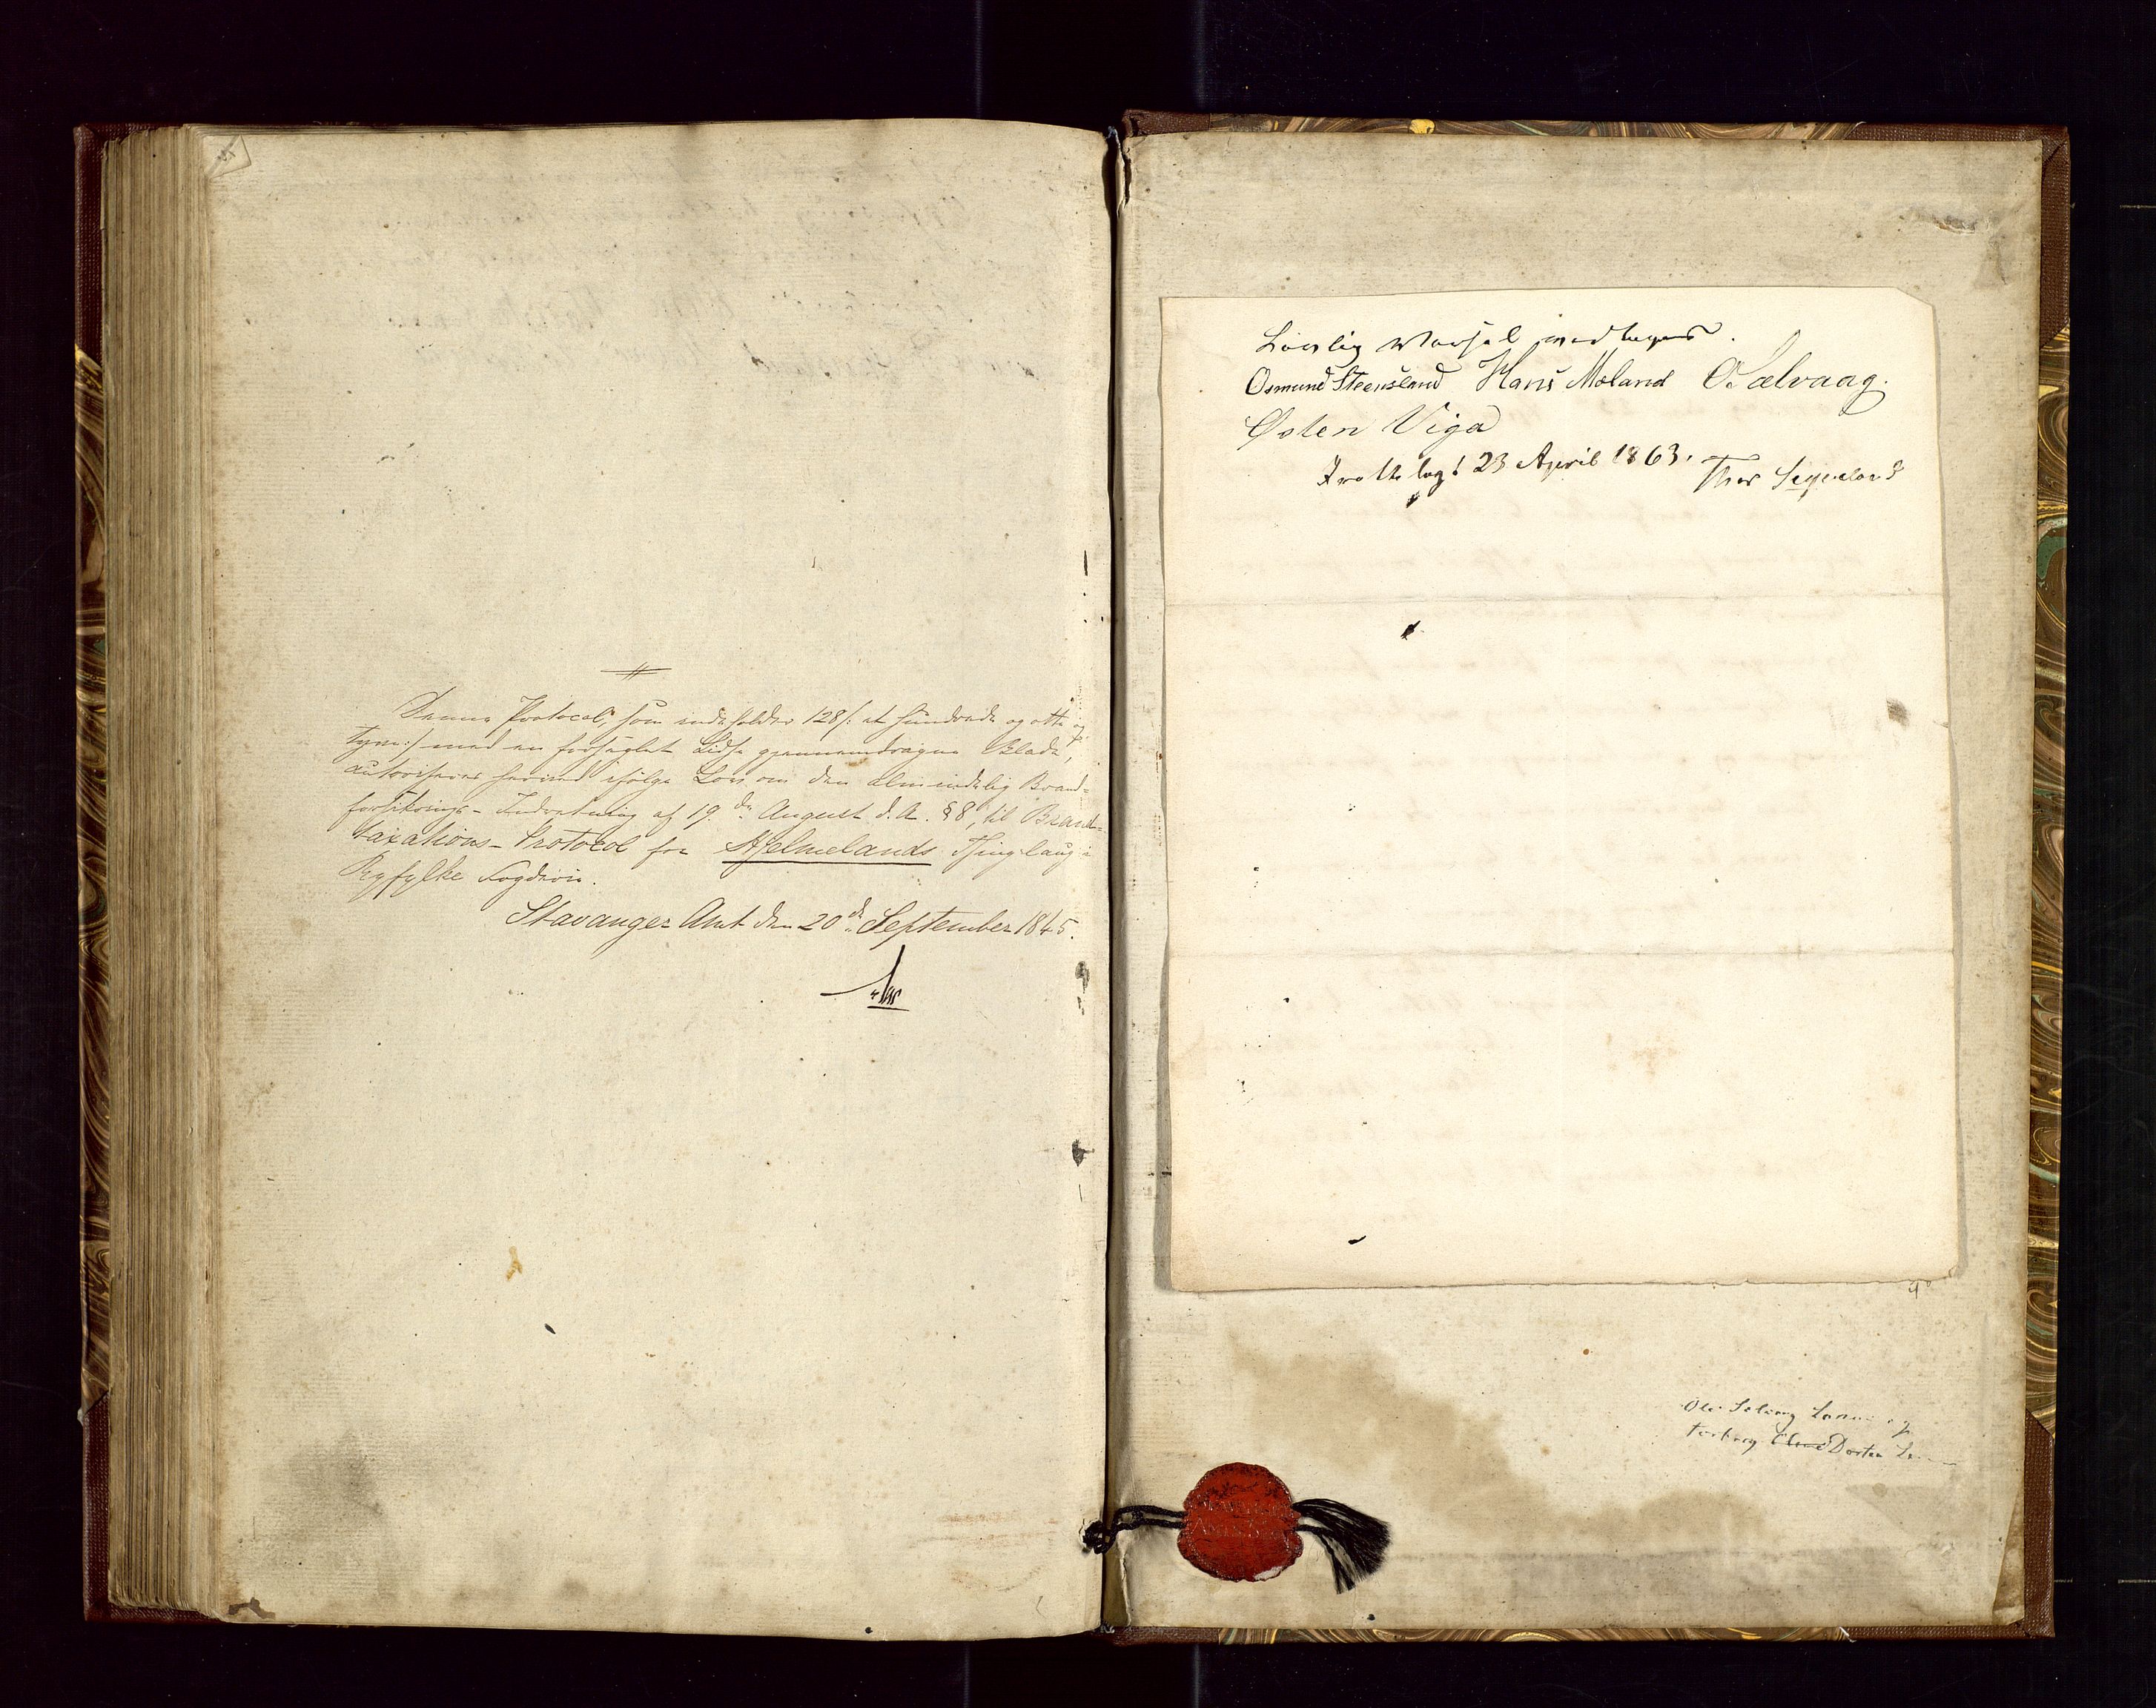 Denne Protocol, som indeholder 128/: et hundrede og otte og
tyve:/ med en forseglet Lidse gjennemdragne Blade,
autoriseres herved ifølge Lov om den almindelig Brand-
forsikrings-Indretning af 19de August d. A. §8, til Brand-
taxations-Protocol for Hjelmelands Thinglaug i
Ryfylke Fogderie.
Stavanger Amt den 20de September 1845.
Lovlig Varsel modtaget.
Osmund Steensland Hans Mæland O. Sælvaag.
Østen Viga
Fratlagt 23 April 1863.
Thor
Ole
Dorten